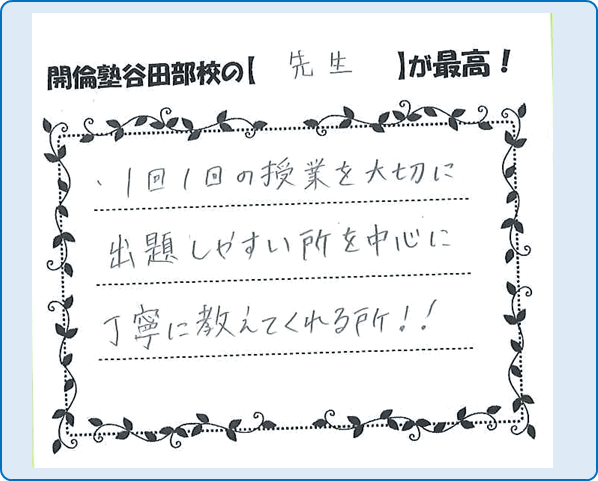 開倫塾谷田部校の【 先生 】が最高！
・1回1回の授業を大切に
出題しやすい所を中心に
丁寧に教えてくれる所！！